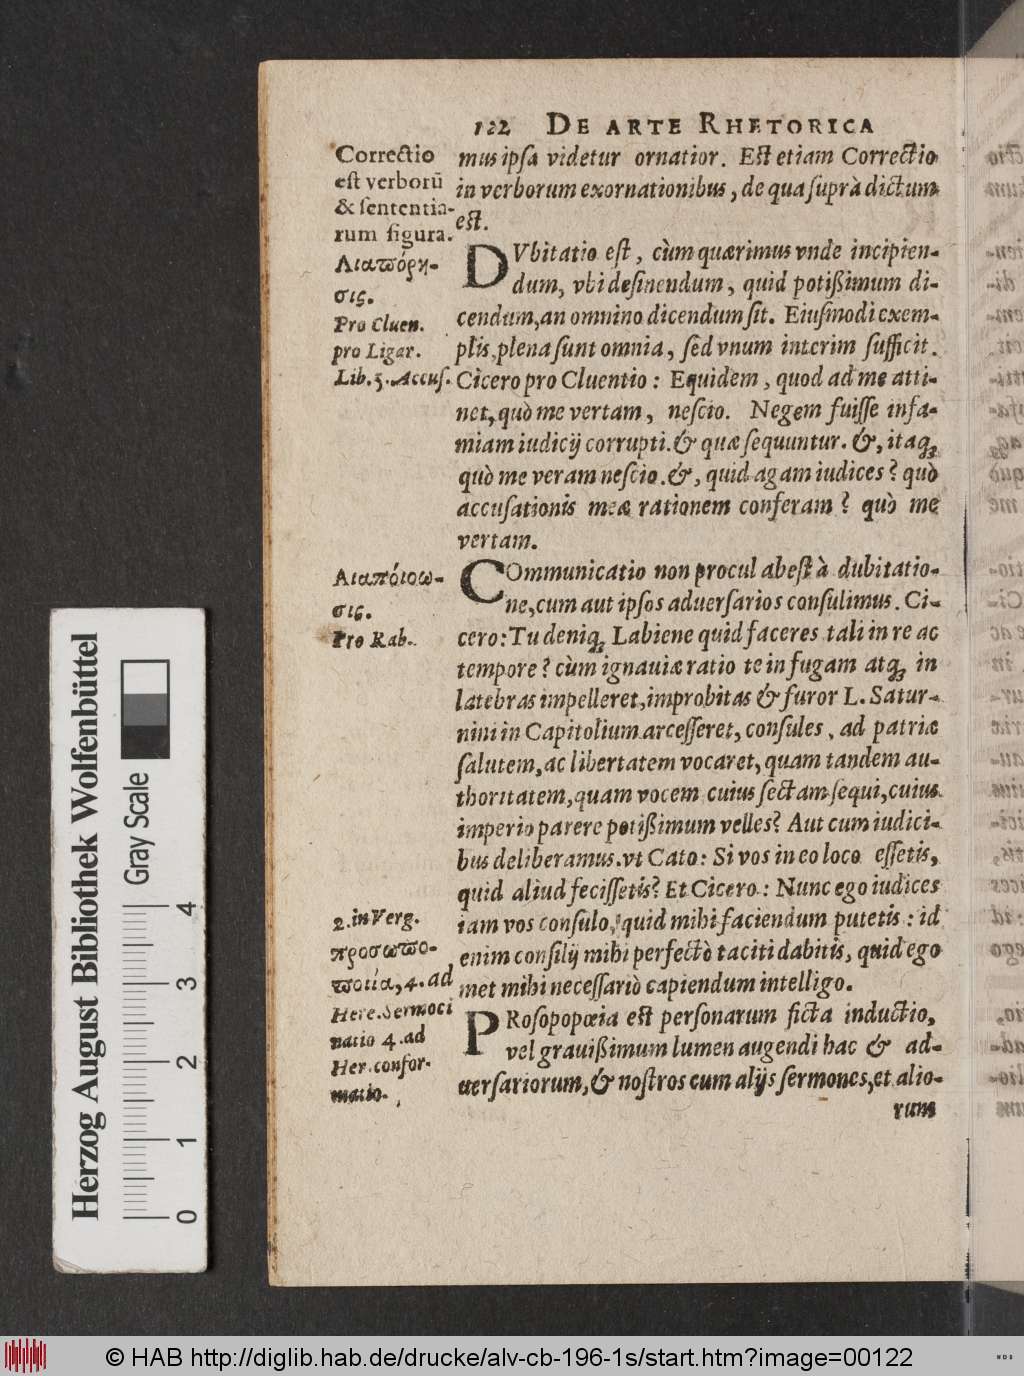 122 DE ARTE RHETORICA
Correctio
est verborū
& sententia-
rum figura.
mus ipsa videtur ornatior. Est etiam Correctio
in verborum exornationibus, de qua suprà dictum
est.
Διαπόρη-
σις.
Pro Cluen.
pro Ligar.
Lib. 5. Accus.
DVbitatio est, cùm quærimus vnde incipien-
dum, vbi desinendum, quid potißimum di-
cendum, an omnino dicendum sit. Eiusmodi exem-
plis, plena sunt omnia, sed vnum interim sufficit.
Cicero pro Cluentio: Equidem, quod ad me atti-
net, quò me vertam, nescio. Negem fuisse infa-
miam iudicij corrupti. & quæ sequuntur. &, itaq;
quò me veram nescio. &, quid agam iudices? quò
accusationis meæ rationem conferam? quò me
vertam.
σις.
Pro Rab.
COmmunicatio non procul abest à dubitatio-
ne, cum aut ipsos aduersarios consulimus. Ci-
cero: Tu deniq; Labiene quid faceres tali in re ac
tempore? cùm ignauiæ ratio te in fugam atq; in
latebras impelleret, improbitas & furor L. Satur-
nini in Capitolium arcesseret, consules, ad patriæ
salutem, ac libertatem vocaret, quam tandem au-
thoritatem, quam vocem cuius sectam sequi, cuius
imperio parere potißimum velles? Aut cum iudici-
bus deliberamus. vt Cato: Si vos in eo loco essetis,
quid aliud fecissetis? Et Cicero: Nunc ego iudices
iam vos consulo, quid mihi faciendum putetis: id
enim consilij mihi perfectò taciti dabitis, quid ego
met mihi necessariò capiendum intelligo.
2. in Verg.
προσωπο-
ποιία, 4. ad
Here. Sermoci
natio 4. ad
Her. confor-
matio.
PRosopopœia est personarum ficta inductio,
vel grauißimum lumen augendi hac & ad-
uersariorum, & nostros cum alijs sermones, et alio-
rum
Herzog August Bibliothek Wolfenbüttel
Gray Scale
0 1 2 3 4
© HAB http://diglib.hab.de/drucke/alv-cb-196-1s/start.htm?image=00122